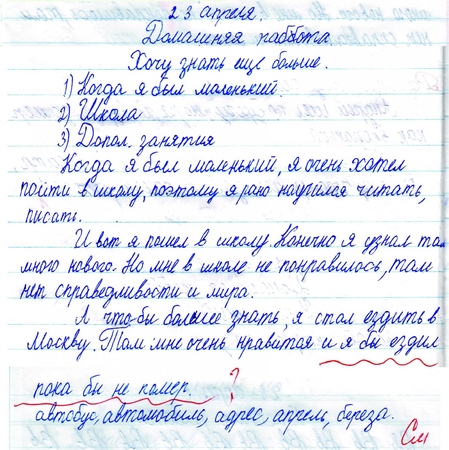 23 апреля.
Домашняя раббота.
Хочу знать еще больше.
1) Когда я был маленький.
2) Школа
3) Допол. занятия
Когда я был маленький, я очень хотел
пойти в школу, поэтому я рано научился читать,
писать.
И вот я пошел в школу. Конечно я узнал там
много нового. Но мне в школе не понравилось, там
нет справедливости и мира.
А что-бы больше знать, я стал ездить в
Москву. Там мне очень нравится и я бы ездил
пока бы не помер. ?
автобус, автомобиль, адрес, апрель, береза.
См